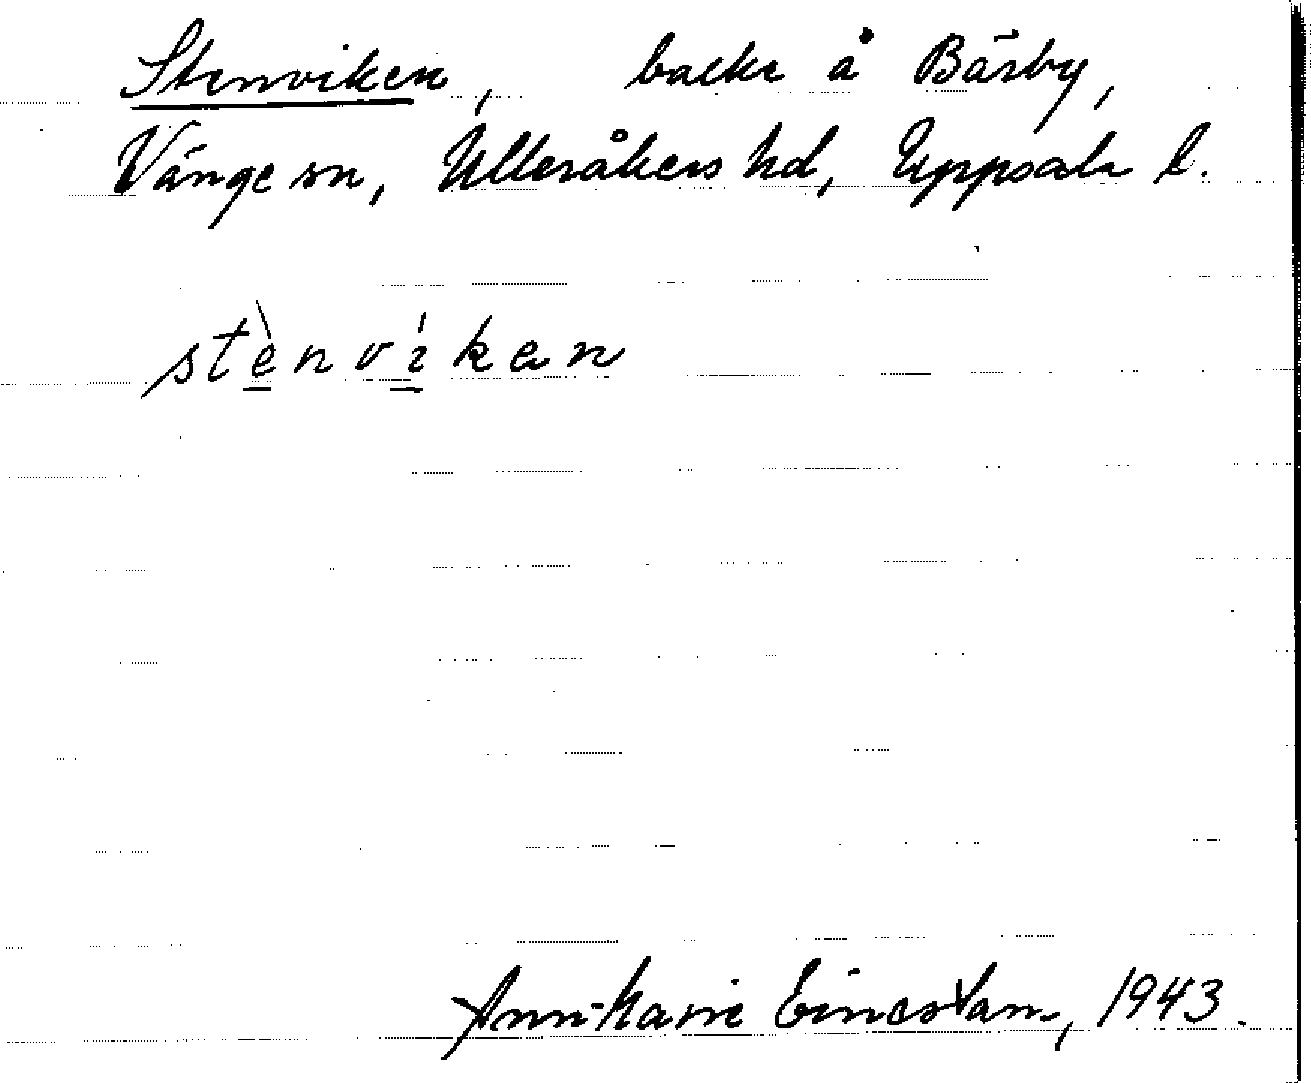 Stenviken, backe å Bärby,
Vänge sn, Ulleråkers hd, Uppsala l.
stè̱nví̱kən
Ann-Marie Einestam, 1943.